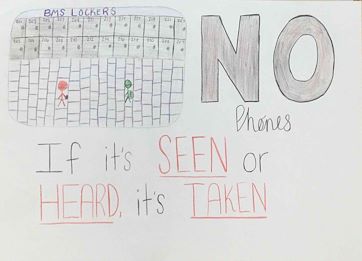 BMS LOCKERS
NO
Phones
If it's SEEN or
HEARD, it's TAKEN